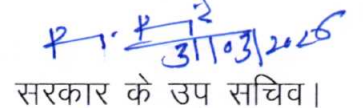 31/03/2026
सरकार के उप सचिव।